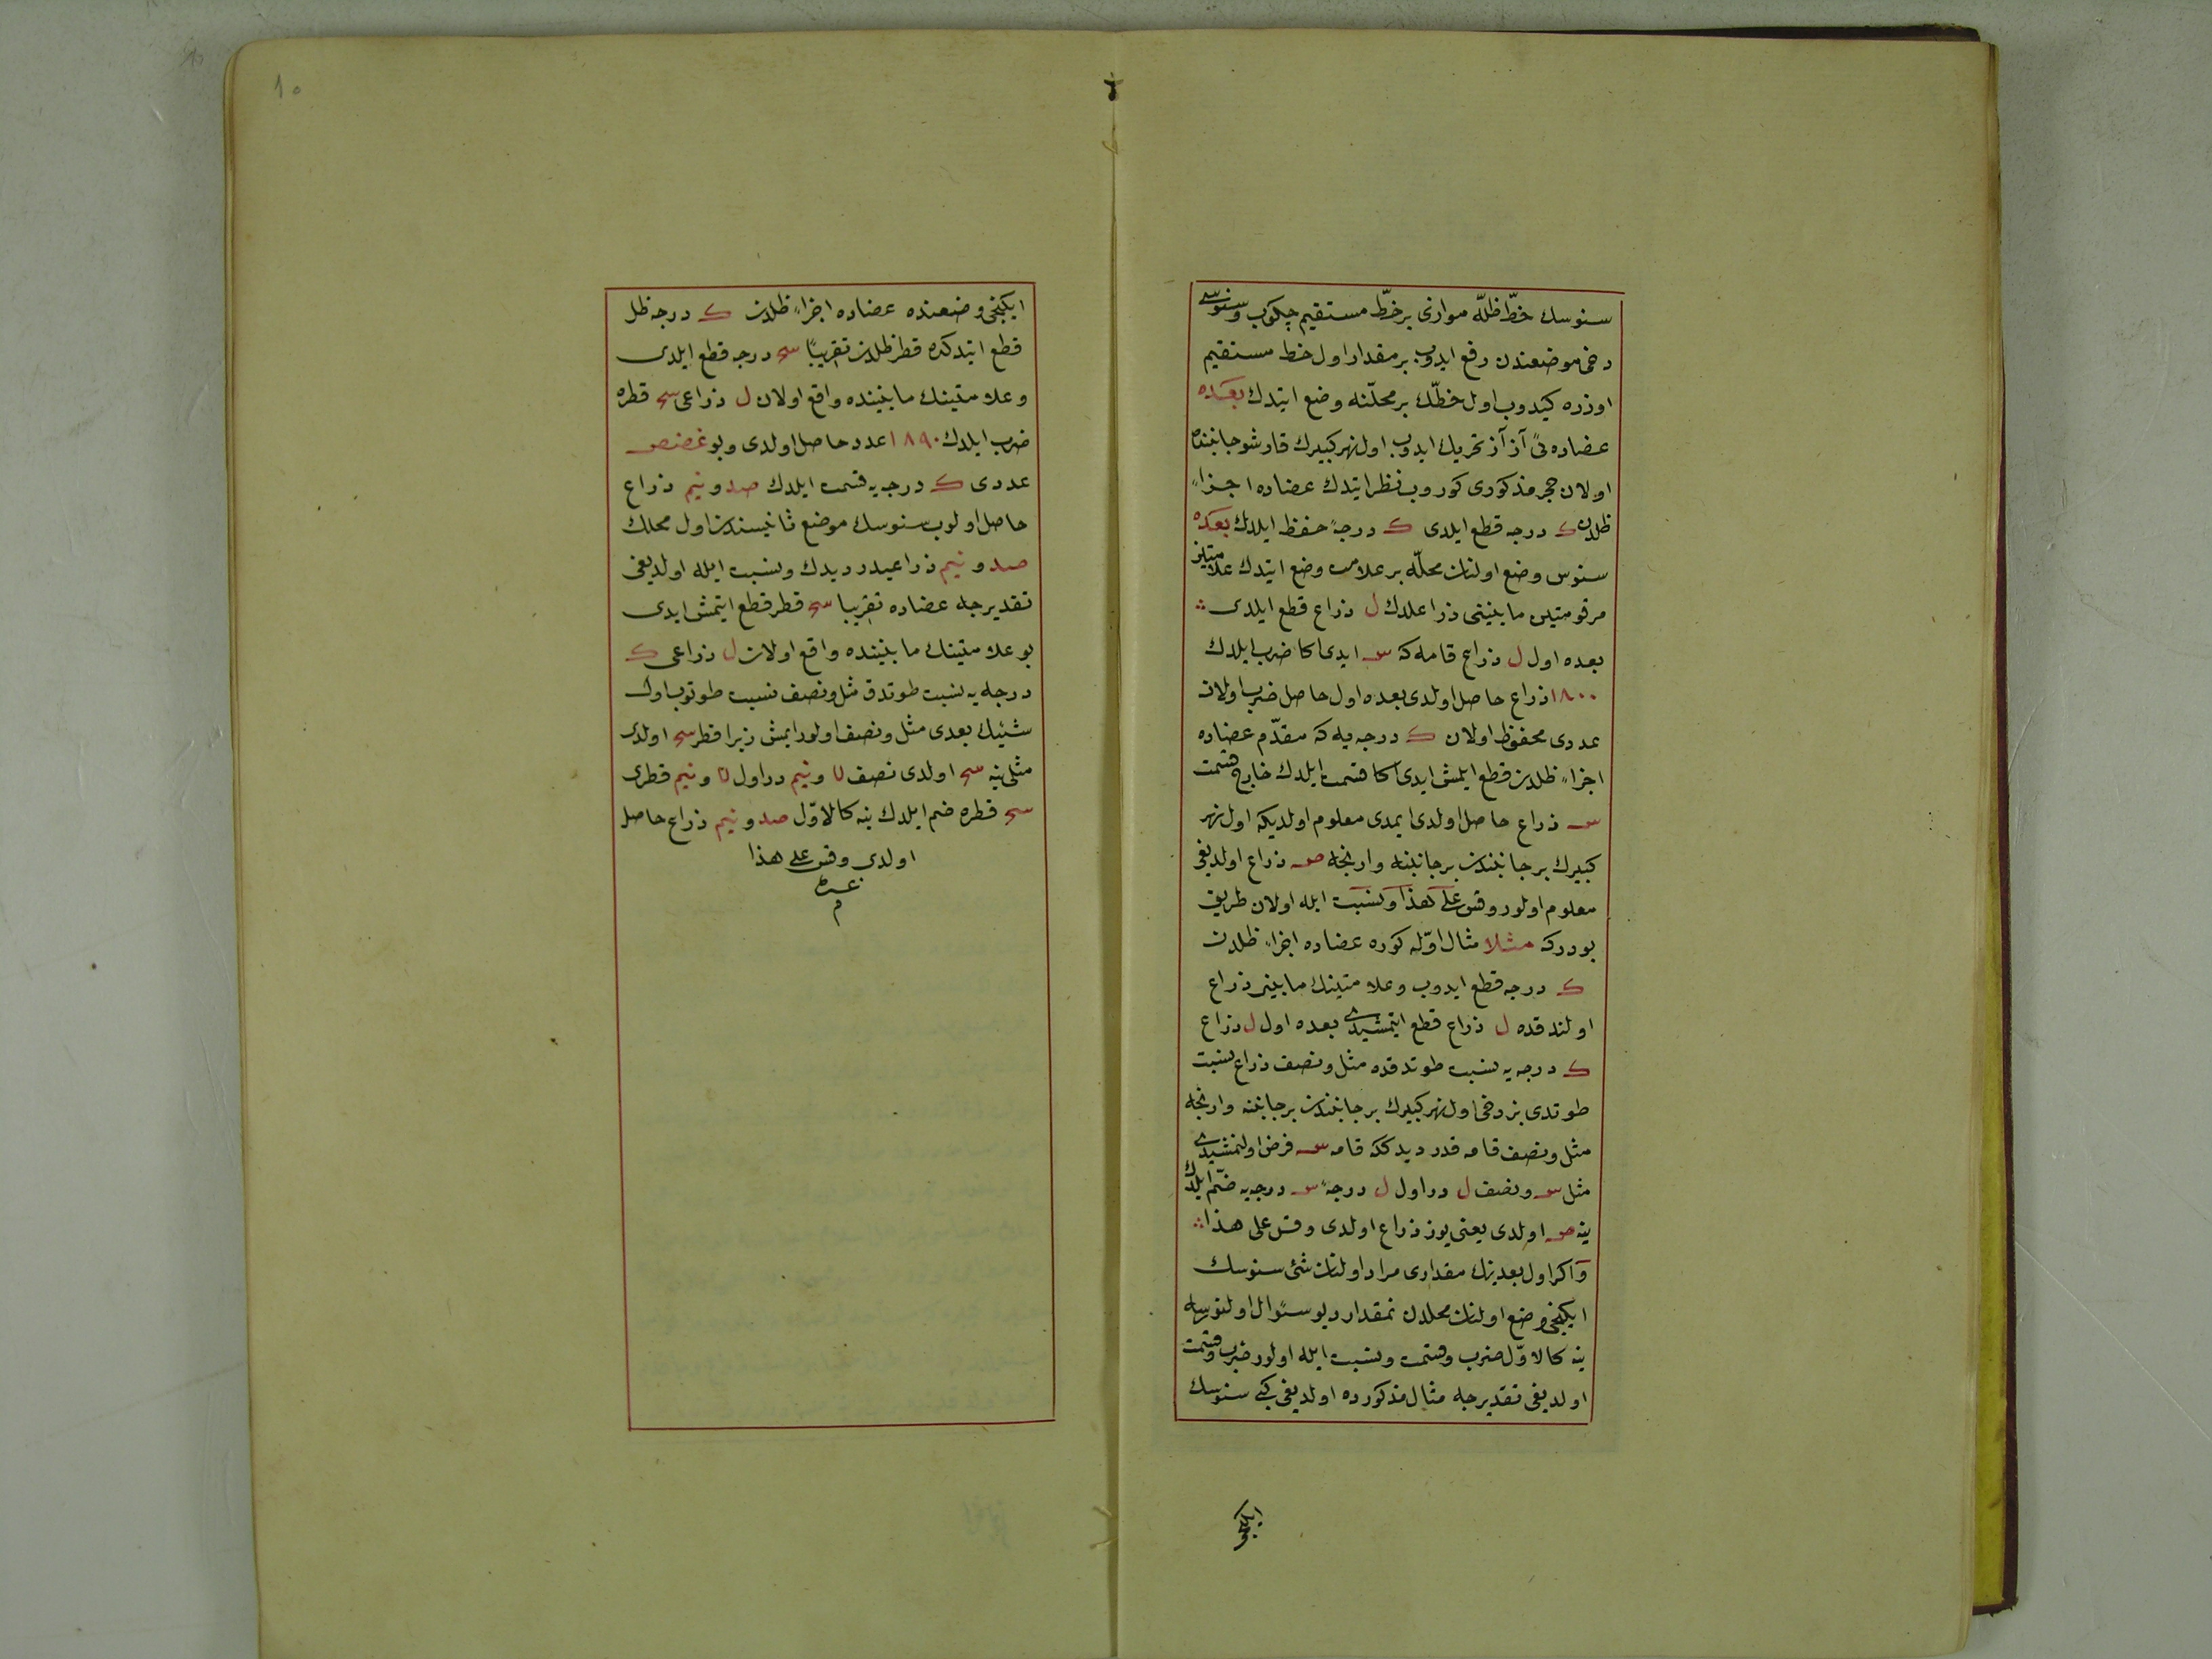 سنوسك خطّ ظلّه موازى بر خطّ مستقيم چكوب و سنوسى
دخى موضعندن رفع ايدوب بر مقدار اول خط مستقيم
اوزره كيدوب اول خطّك بر محلّنه وضع ايتدك بعده
عضاده يى آز آز تحريك ايدوب اول نهر كبيرك قارشو جانبنده
اولان حجر مذكورى كوروب نظر ايتدك عضاده اجزاء
ظلدن ك درجه قطع ايلدى ك درجه حفظ ايلدك بعده
سنوس وضع اولنان محلّه بر علامت وضع ايتدك علامتين
مرقومتين مابينى ذراعلدك ل ذراع قطع ايلدى
بعده اول ل ذراع قامه كه س ايدى اكا ضرب ايلدك
١٨٠٠ ذراع حاصل اولدى بعده اول حاصل ضرب اولان
عددى محفوظ اولان ك درجه يه كه مقدّم عضاده
اجزاء ظلدن قطع ايلمش ايدى اكا قسمت ايلدك خارج قسمت
ص ذراع حاصل اولدى ايمدى معلوم اولديكه اول نهر
كبيرك بر جانبندن بر جانبنه وارنجه ص ذراع اولديغى
معلوم اولور وقس على هذا و نسبت ايله اولان طريق
بودركه مثلا مثال اوّله كوره عضاده اجزاء ظلدن
ك درجه قطع ايدوب و علامتينك مابينى ذراع
اولندقده ل ذراع قطع ايتمشيدى بعده اول ل ذراع
ك درجه يه نسبت طوتدقده مثل و نصف ذراع نسبت
طوتدى بز دخى اول نهر كبيرك بر جانبندن بر جانبنه وارنجه
مثل و نصف قامه قدر ديدككه قامه س فرض اولنمشيدى
مثل س و نصف ل در اول ل درجه س درجه يه ضمّ ايلدك
ينه ص اولدى يعنى يوز ذراع اولدى وقس على هذا
و اكر اول بعديتك مقدارى مراد اولنان شئ سنوسك
ايكنجى وضع اولنان محلدن نمقدار ديو سئوال اولنورسه
ينه كالاوّل ضرب و قسمت و نسبت ايله اولور ضرب و قسمت
اولديغى تقديرجه مثال مذكورده اولديغى كبى سنوسك
ايكنجى وضعنده عضاده اجزاء ظلدن ك درجه ظل
قطع ايتدكده قطر ظلدن تقريبًا سح درجه قطع ايلدى
و علامتينك مابيننده واقع اولان ل ذراعى سح قطره
ضرب ايلدك ١٨٩٠ عدد حاصل اولدى و بو غضص
عددى ك درجه يه قسمت ايلدك صد و نيم ذراع
حاصل اولوب سنوسك موضع ثانيسندن اول محلك
صد و نيم ذراعيدر ديدك و نسبت ايله اولديغى
تقديرجه عضاده تقريبا سح قطر قطع ايتمش ايدى
بو علامتينك مابيننده واقع اولان ل ذراعى ك
درجه يه نسبت طوتدق مثل و نصف نسبت طوتوب اول
شئيك بعدى مثل و نصف اولور ايمش زيرا قطر سح اولدى
مثلى ينه سح اولدى نصف لا و نيم در اول لا و نيم قطرى
سح قطره ضم ايلدك ينه كالاوّل صد و نيم ذراع حاصل
اولدى وقس على هذا
تمت
م